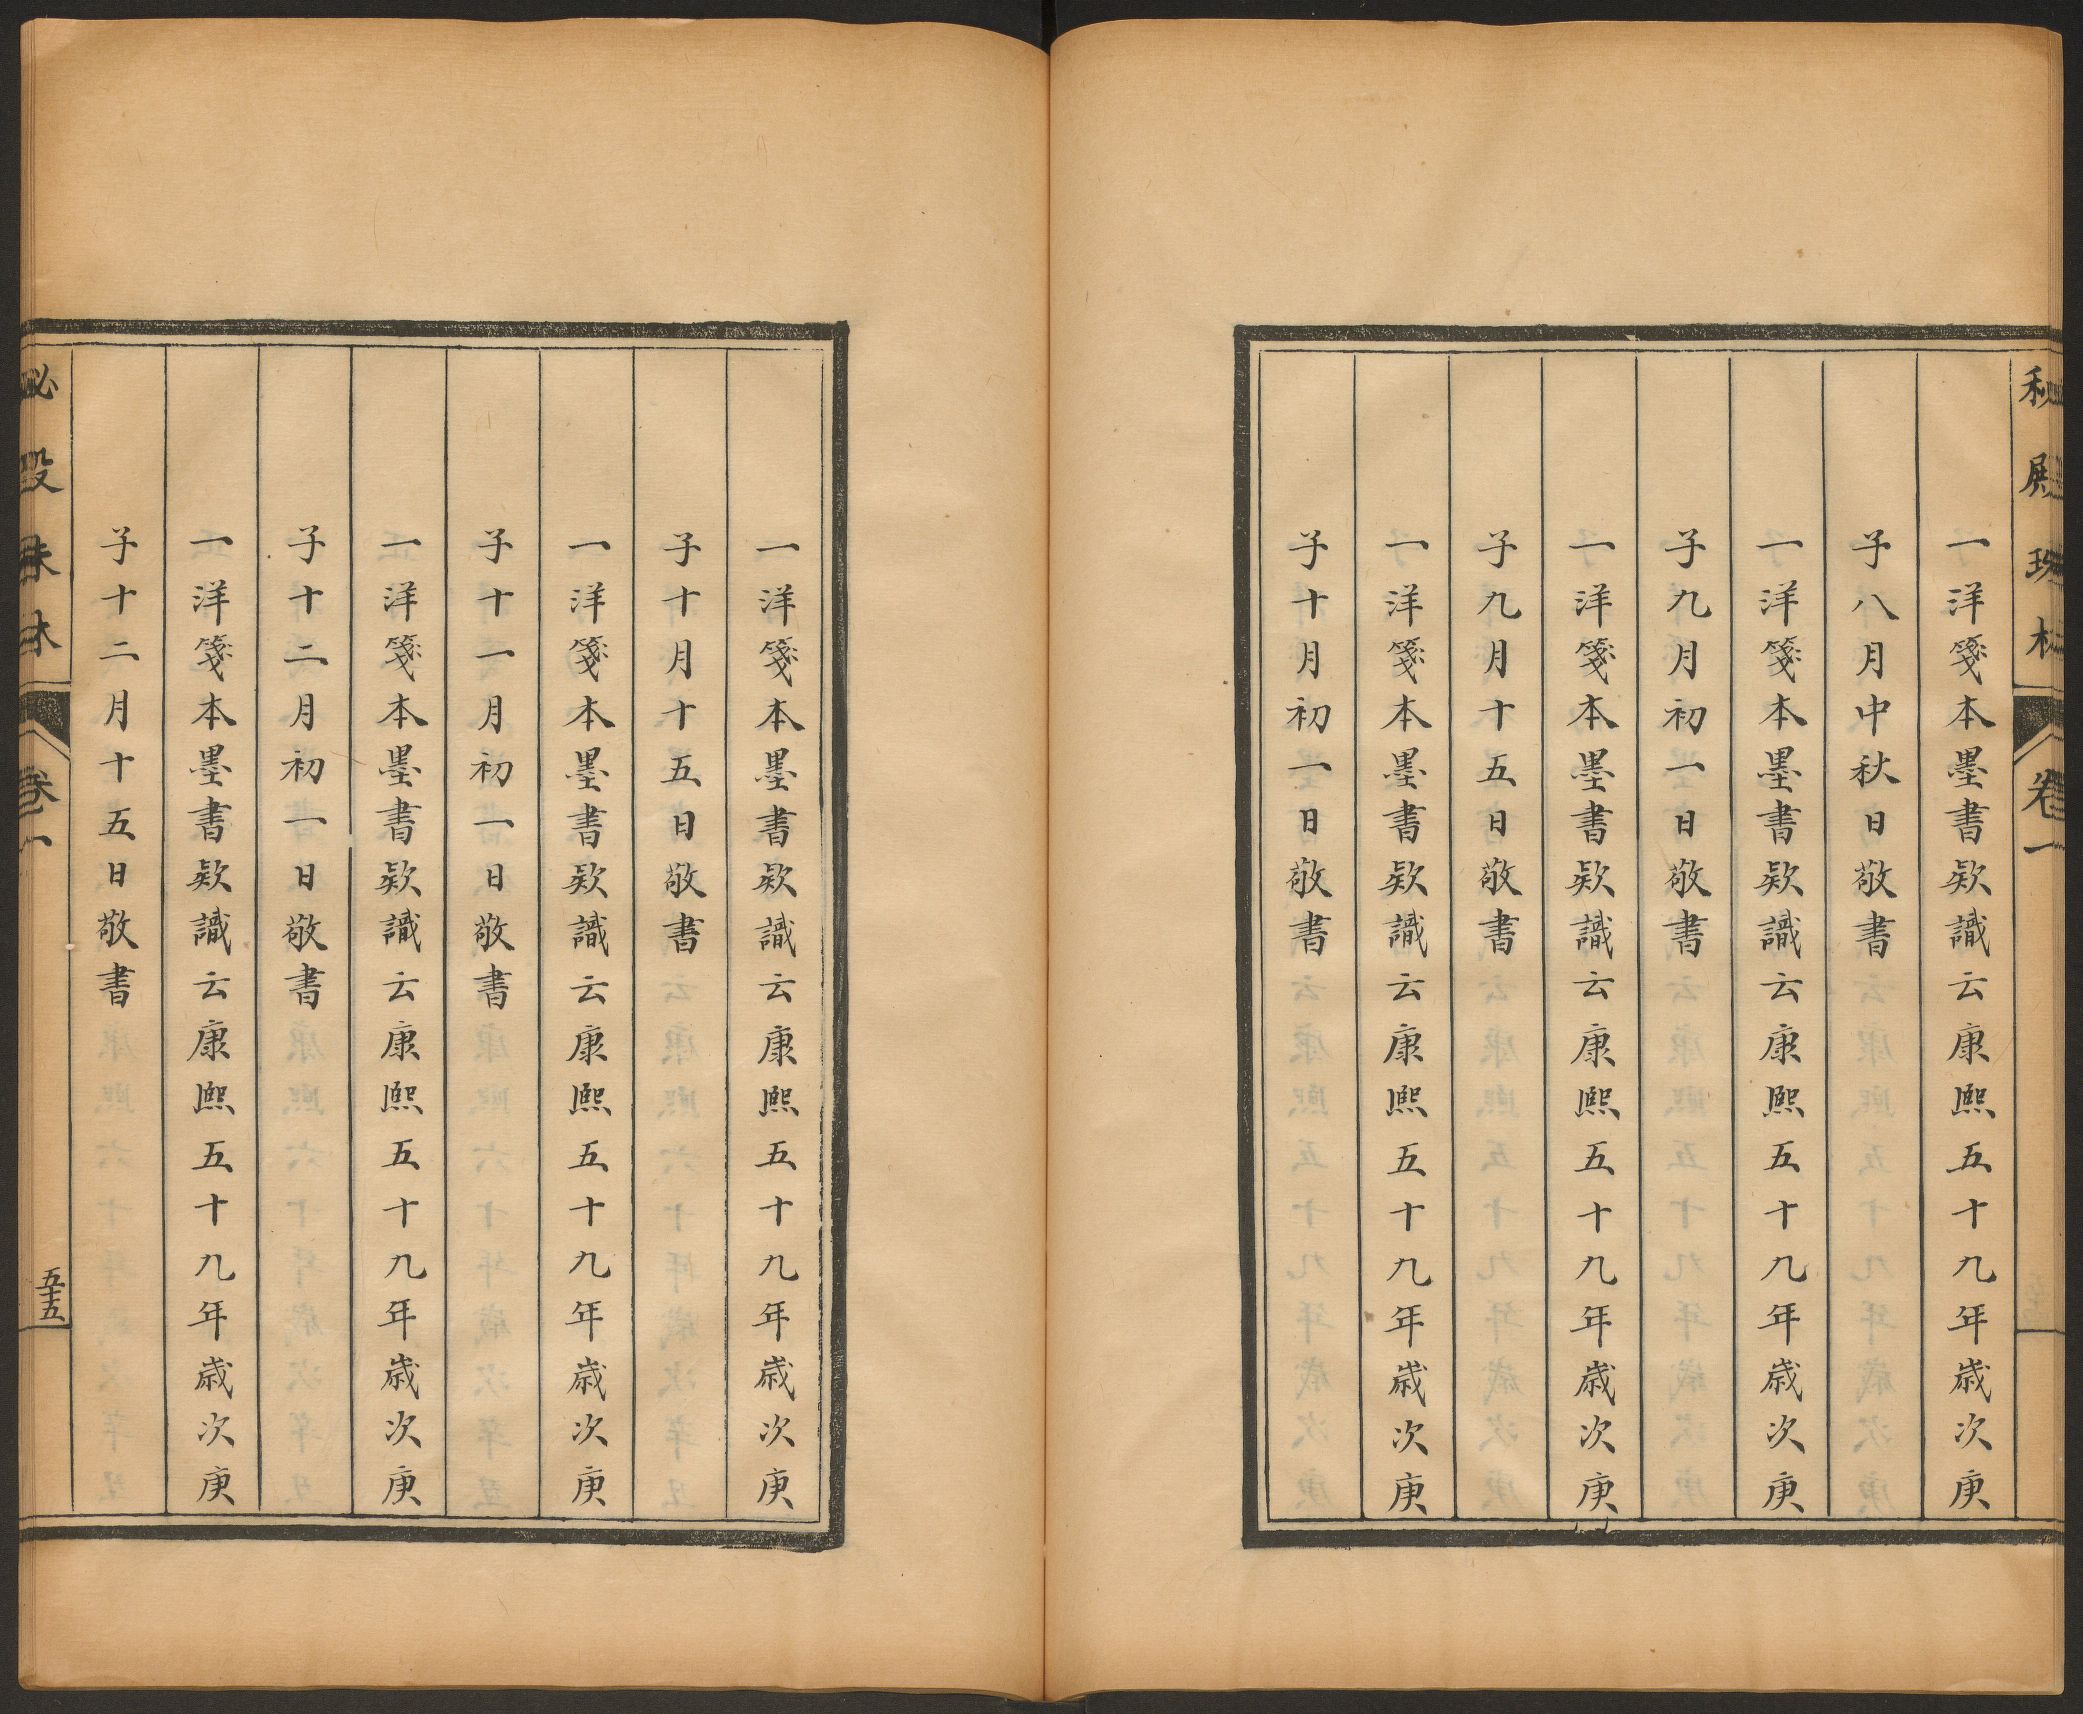 秘殿珠林 卷一
一洋箋本墨書欵識云康熙五十九年歲次庚
子八月中秋日敬書
一洋箋本墨書欵識云康熙五十九年歲次庚
子九月初一日敬書
一洋箋本墨書欵識云康熙五十九年歲次庚
子九月十五日敬書
一洋箋本墨書欵識云康熙五十九年歲次庚
子十月初一日敬書
一洋箋本墨書欵識云康熙五十九年歲次庚
子十月十五日敬書
一洋箋本墨書欵識云康熙五十九年歲次庚
子十一月初一日敬書
一洋箋本墨書欵識云康熙五十九年歲次庚
子十二月初一日敬書
一洋箋本墨書欵識云康熙五十九年歲次庚
子十二月十五日敬書
秘殿珠林 卷一 五十五